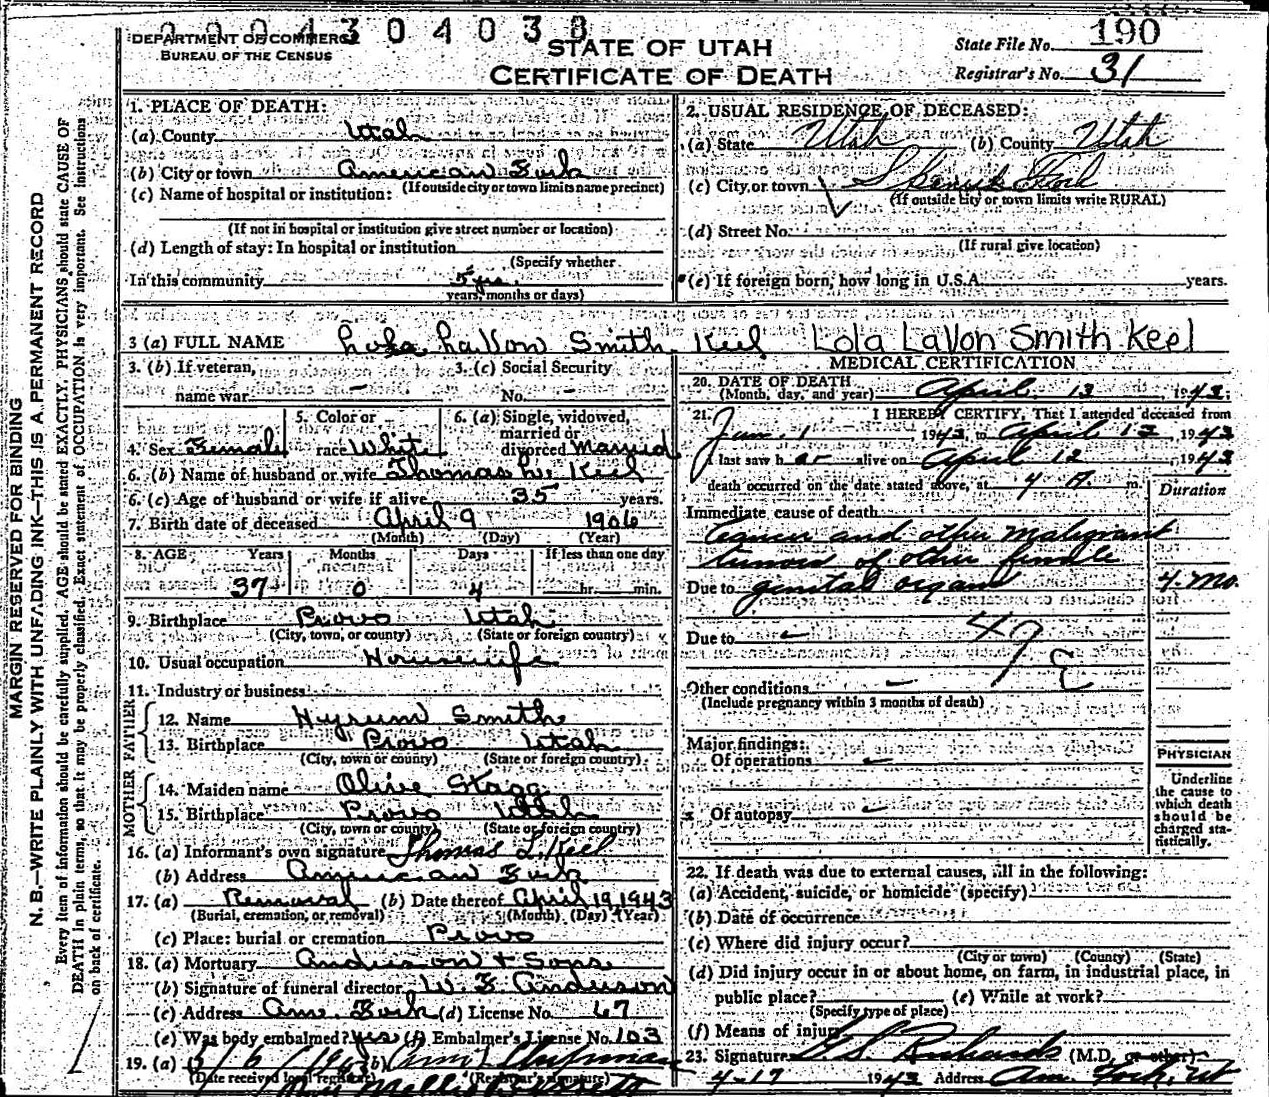 2004304038
DEPARTMENT OF COMMERCE
BUREAU OF THE CENSUS
STATE OF UTAH
CERTIFICATE OF DEATH
State File No. 190
Registrar's No. 31
MARGIN RESERVED FOR BINDING
N. B.—WRITE PLAINLY WITH UNFADING INK—THIS IS A PERMANENT RECORD
Every item of information should be carefully supplied. AGE should be stated EXACTLY. PHYSICIANS should state CAUSE OF
DEATH in plain terms, so that it may be properly classified. Exact statement of OCCUPATION is very important. See instructions
on back of certificate.
1. PLACE OF DEATH:
(a) County Utah
(b) City or town American Fork
(If outside city or town limits name precinct)
(c) Name of hospital or institution:
(If not in hospital or institution give street number or location)
(d) Length of stay: In hospital or institution
(Specify whether
In this community 5 yrs.
years, months or days)
2. USUAL RESIDENCE OF DECEASED:
(a) State Utah (b) County Utah
(c) City or town Spanish Fork
(If outside city or town limits write RURAL)
(d) Street No.
(If rural give location)
(e) If foreign born, how long in U.S.A. years.
3 (a) FULL NAME Lola LaVon Smith Keel Lola LaVon Smith Keel
3. (b) If veteran, name war - 3. (c) Social Security No. -
4. Sex Female 5. Color or race White 6. (a) Single, widowed, married or divorced Married
6. (b) Name of husband or wife Thomas L. Keel
6. (c) Age of husband or wife if alive 35 years.
7. Birth date of deceased April 9 1906
(Month) (Day) (Year)
8. AGE Years Months Days If less than one day
37 0 4 hr. min.
9. Birthplace Provo Utah
(City, town, or county) (State or foreign country)
10. Usual occupation Housewife
11. Industry or business
FATHER
12. Name Hyrum Smith
13. Birthplace Provo Utah
(City, town or county) (State or foreign country)
MOTHER
14. Maiden name Olive Stagg
15. Birthplace Provo Utah
(City, town or county) (State or foreign country)
16. (a) Informant's own signature Thomas L. Keel
(b) Address American Fork
17. (a) Removal (b) Date thereof April 19, 1943
(Burial, cremation, or removal) (Month) (Day) (Year)
(c) Place: burial or cremation Provo
18. (a) Mortuary Anderson & Sons
(b) Signature of funeral director W. E. Anderson
(c) Address Am. Fork (d) License No. 67
(e) Was body embalmed? yes (f) Embalmer's License No. 103
19. (a) (b)
(Date received local registrar) (Registrar's signature)
MEDICAL CERTIFICATION
20. DATE OF DEATH
(Month, day, and year) April 13, 1943.
21. I HEREBY CERTIFY, That I attended deceased from
Jan. 1 1943 to April 13, 1943
I last saw her alive on April 12, 1943
death occurred on the date stated above, at 4 A. m.
Duration
Immediate cause of death
Cancer and other malignant
tumors of other female
Due to genital organs 4 Mo.
Due to -
Other conditions -
(Include pregnancy within 3 months of death)
Major findings:
Of operations -
Of autopsy -
PHYSICIAN
Underline
the cause to
which death
should be
charged sta-
tistically.
22. If death was due to external causes, fill in the following:
(a) Accident, suicide, or homicide (specify)
(b) Date of occurrence
(c) Where did injury occur?
(City or town) (County) (State)
(d) Did injury occur in or about home, on farm, in industrial place, in
public place? (e) While at work?
(Specify type of place)
(f) Means of injury
23. Signature Richards (M.D. or other)
4-17 1943 Address Am. Fork, Ut